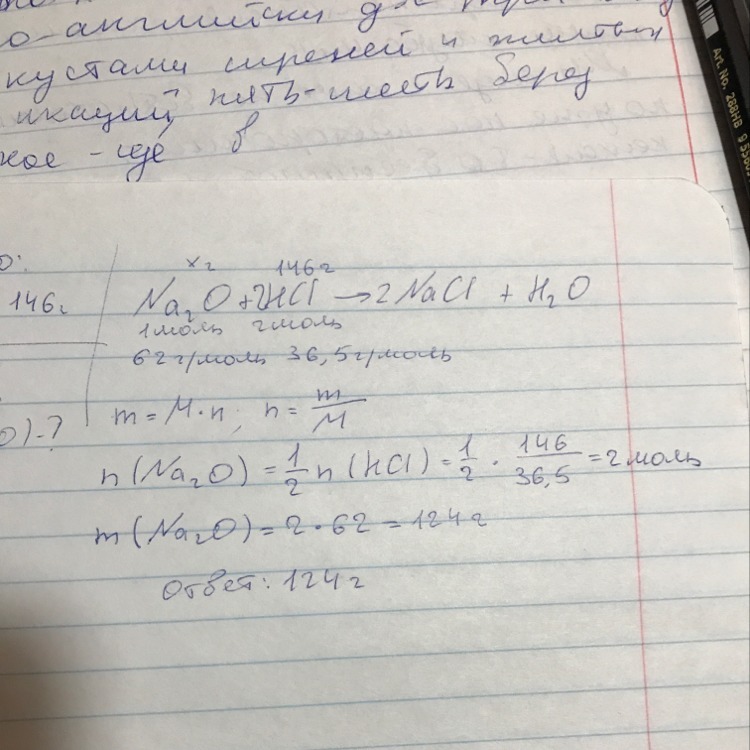 о английски
кустами сиреней и желтых
икаций пять-шесть берез
кое - где в
Art. No. 288HB
146г
хг 146г
Na₂O + 2HCl → 2NaCl + H₂O
1моль 2моль
62г/моль 36,5г/моль
m = M · n; n = m/M
о) - ?
n (Na₂O) = 1/2 n (HCl) = 1/2 · 146/36,5 = 2моль
m (Na₂O) = 2 · 62 = 124г
Ответ: 124г